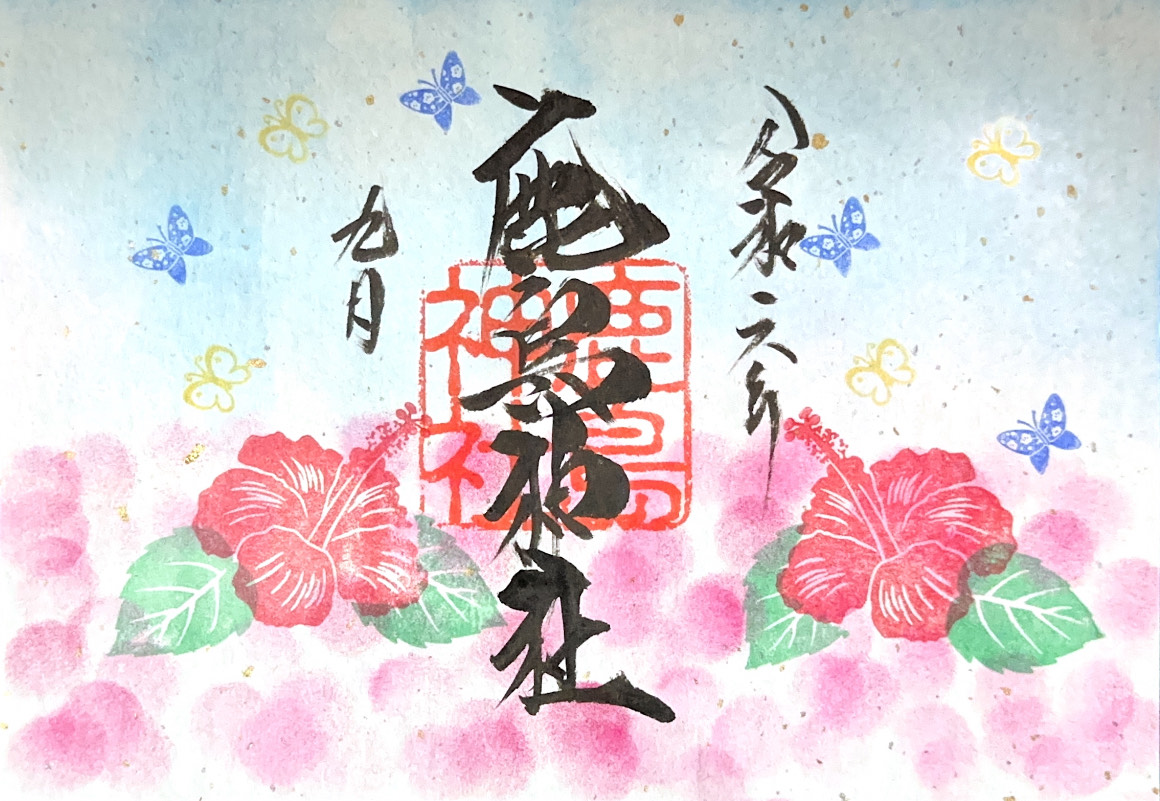 令和六年
鹿島神社
九月
鹿島
神社